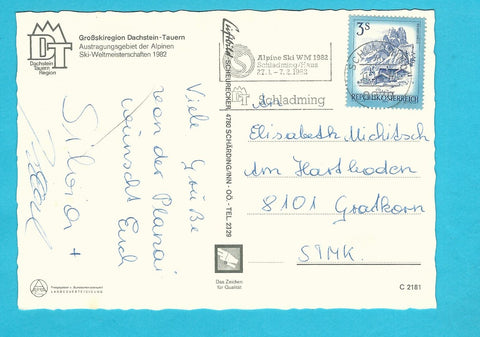 Großskiregion Dachstein-Tauern
Austragungsgebiet der Alpinen
Ski-Weltmeisterschaften 1982
DT
Dachstein
Tauern
Region
Viele Grüße
von der Planai
wünscht Euch
Silvia +
Das Zeichen
für Qualität
SCHEURECKER, 4780 SCHÄRDING/INN - OÖ. - TEL 2329
Alpine Ski WM 1982
Schladming/Haus
27.1. - 7.2.1982
Schladming
3S
REPUBLIK ÖSTERREICH
An
Elisabeth Michitsch
Am Hartboden
8101 Gratkorn
STMK.
C 2181